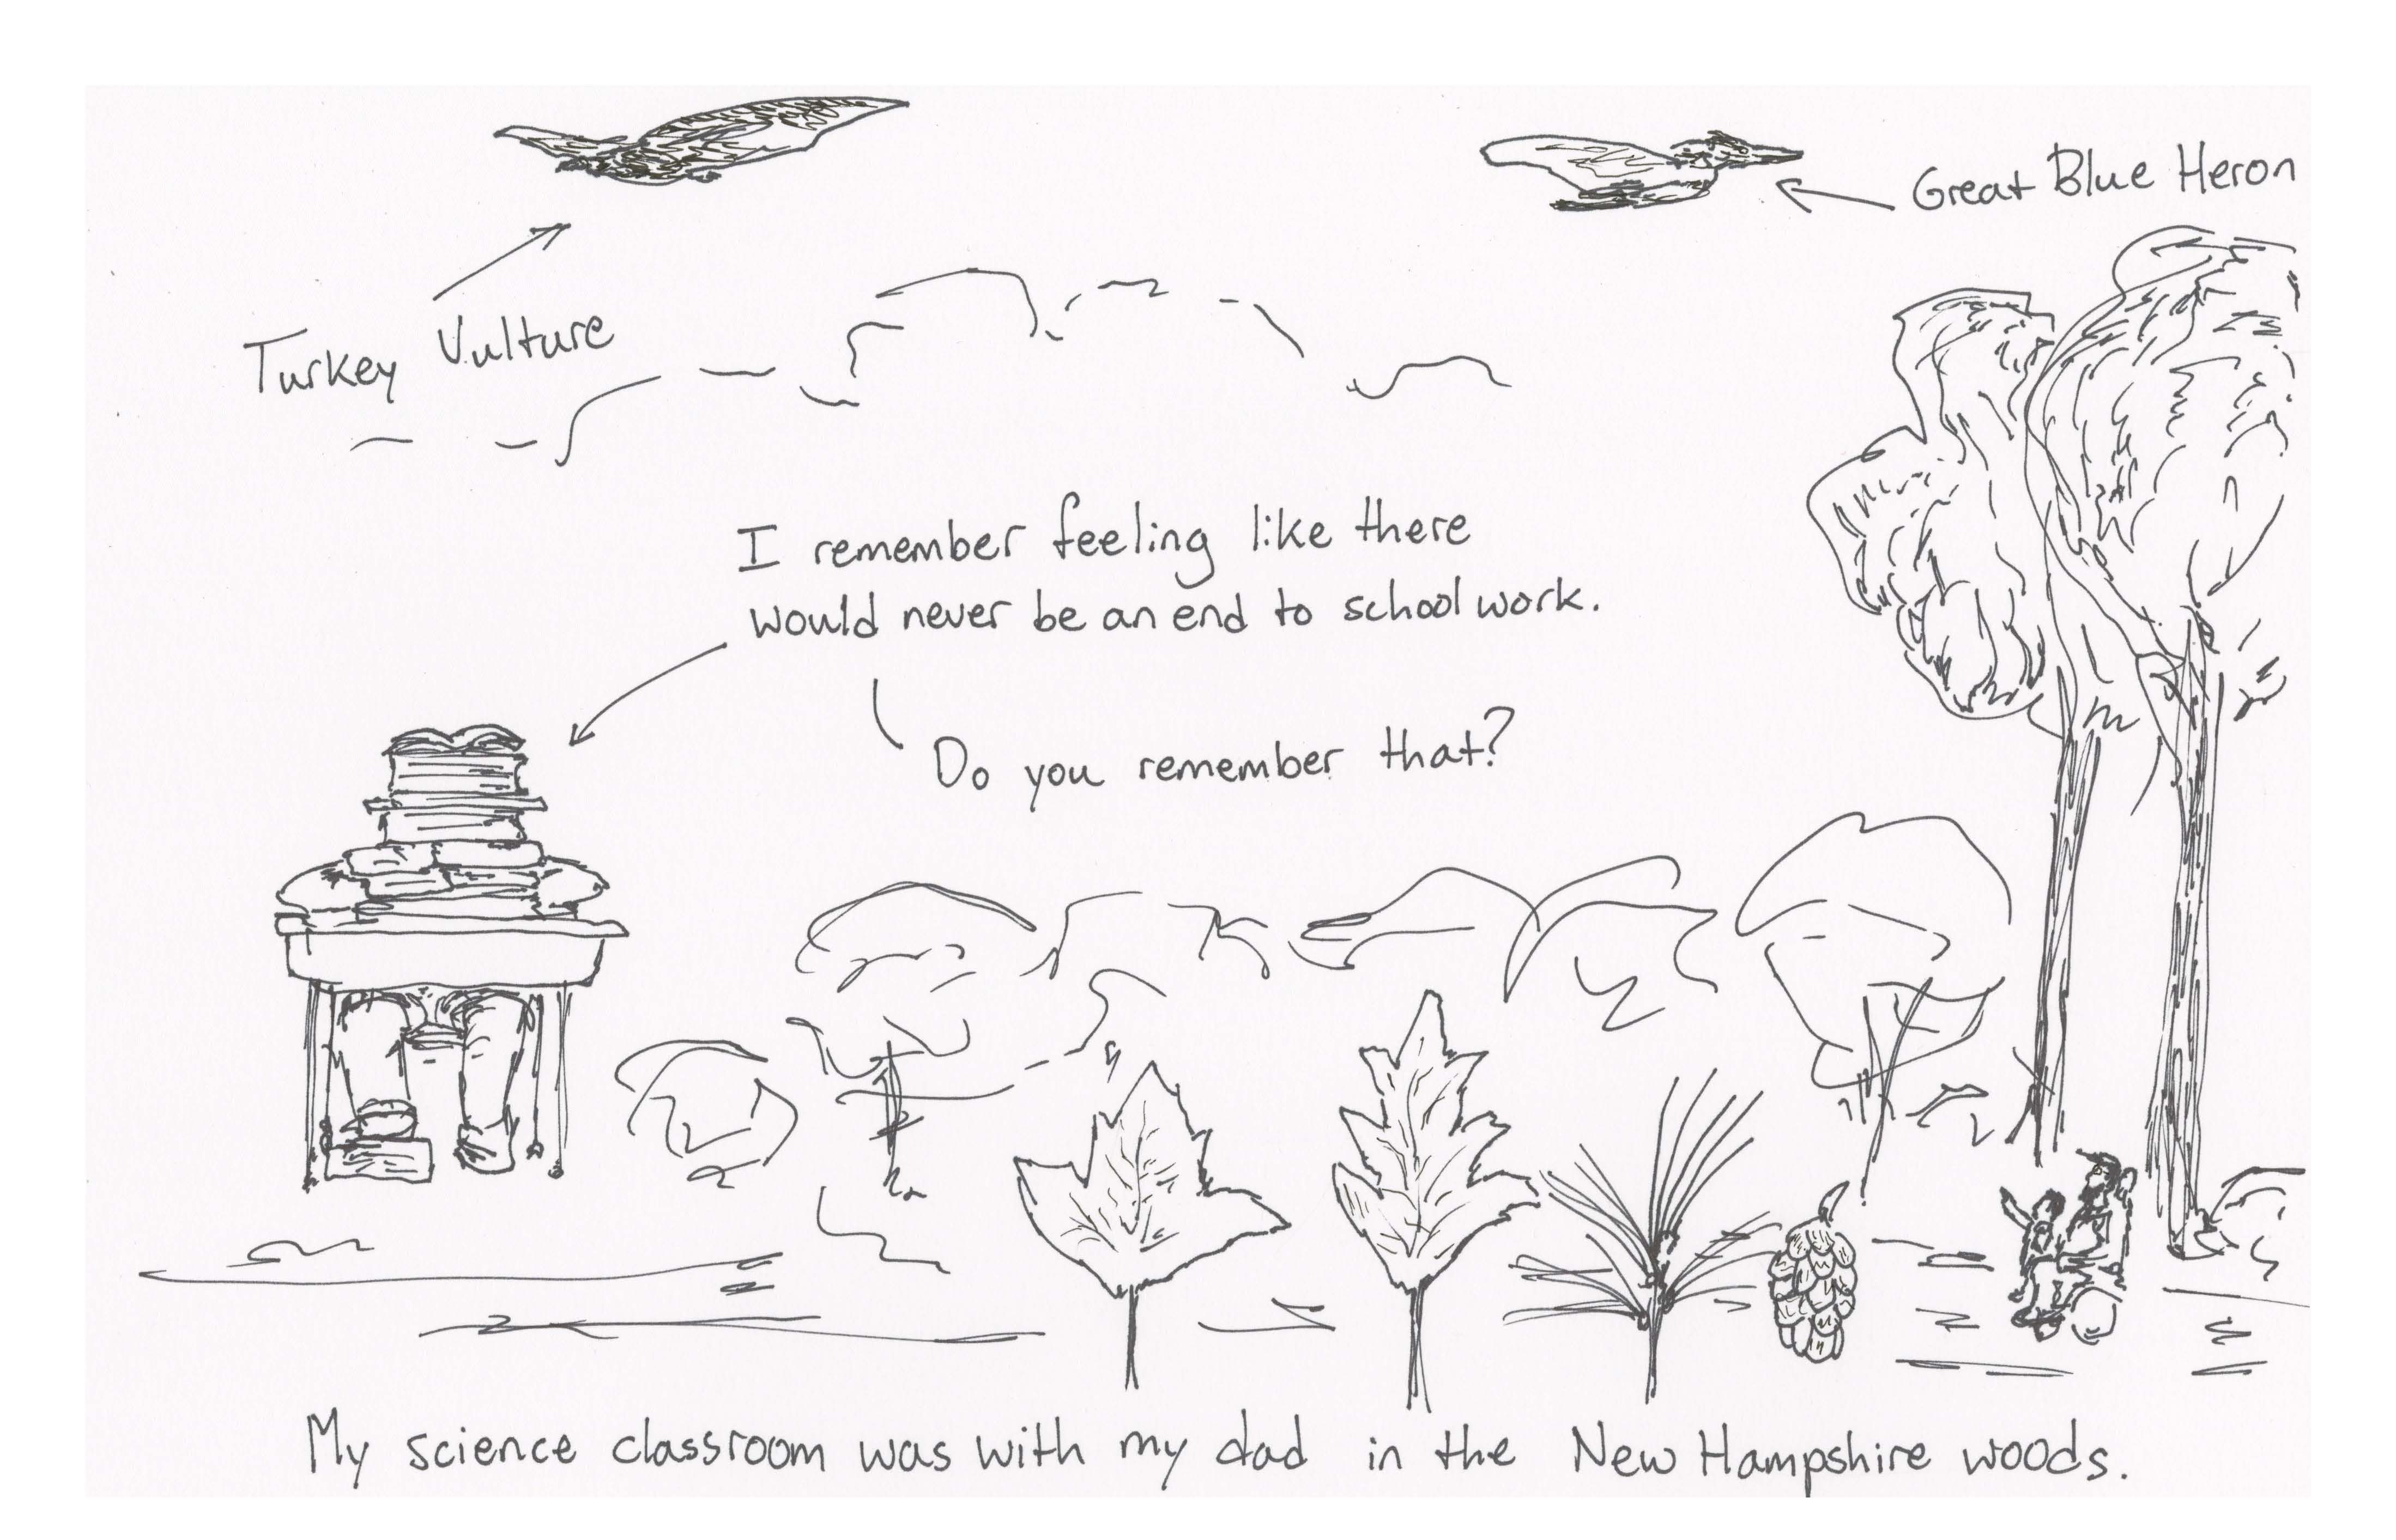 Great Blue Heron
Turkey Vulture
I remember feeling like there
would never be an end to school work.
Do you remember that?
My science classroom was with my dad in the New Hampshire woods.